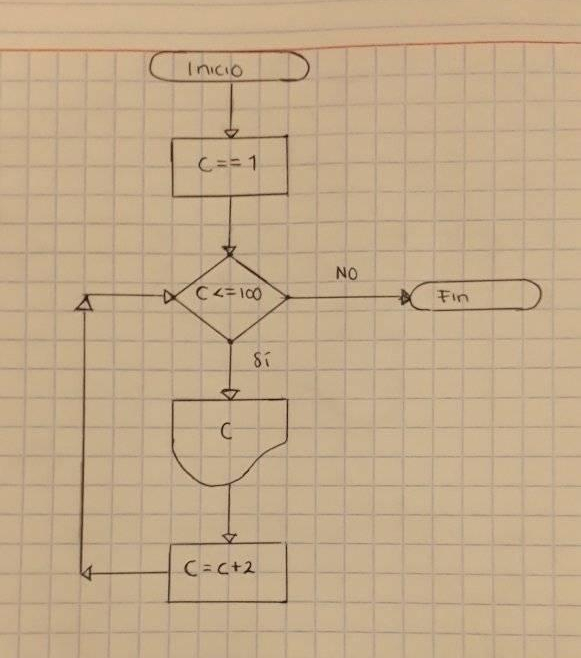 Inicio
C == 1
C <= 100
NO
Fin
Sí
C
C = C + 2